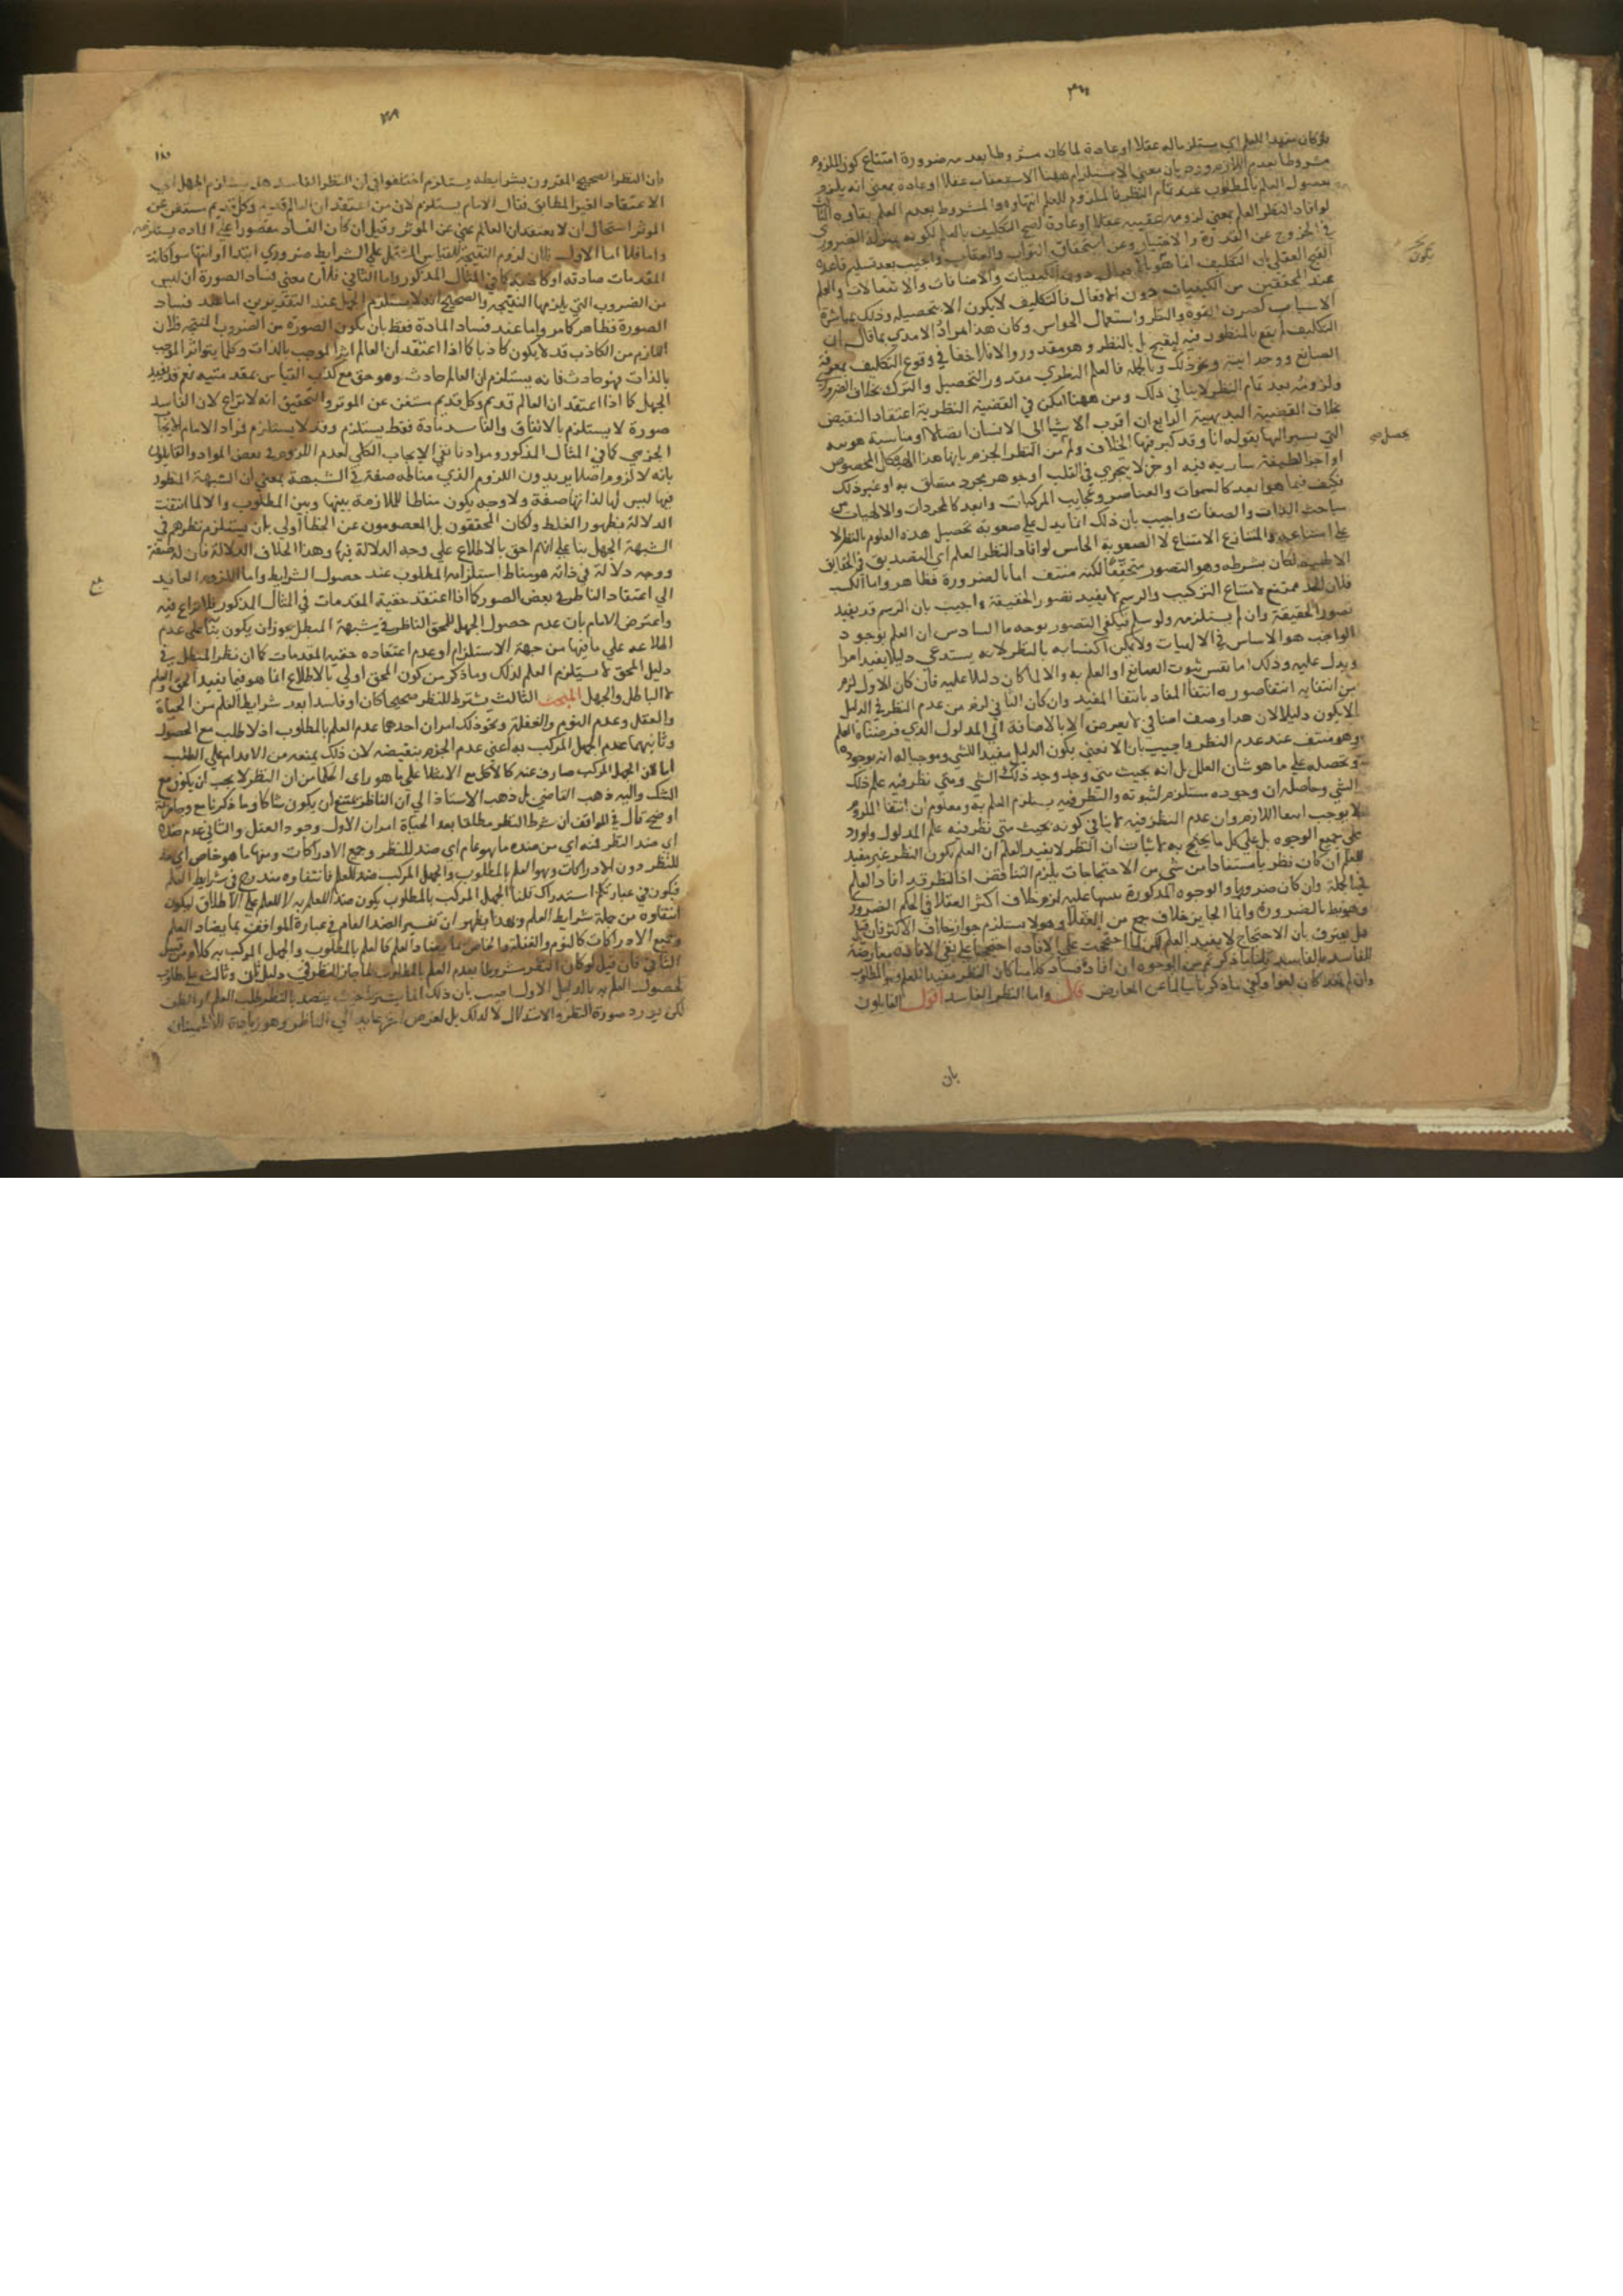 لو كان مفيدا للعلم اي يستلزماله عقلا او عادة لما كان مشروطا بعدمه ضرورة امتناع كون الملزوم
مشروطا بعدم اللازم ورد بان معنى الاستلزام ههنا الاستعقاب عقلا او عادة بمعنى انه يلزم
حصول العلم بالمطلوب عند تمام النظر فالملزوم للعلم انتهاوه والمشروط بعدم العلم بقاوه الثالث
لو افاد النظر العلم بمعنى لزومه عقيبه عقلا او عادة لقبح التكليف بالعلم لكونه بمنزلة الضروري
في الخروج عن القدرة والاختيار وعن استحقاق الثواب والعقاب واجيب بعد تسليم قاعدة
القبح العقلي بان التكليف انما هو بالافعال دون الكيفيات والاضافات والانفعالات والعلم
عند المحققين من الكيفيات دون الافعال فالتكليف لا يكون الا بتحصيله وذلك بمباشرة
الاسباب كصرف القوة والنظر واستعمال الحواس وكان هذا مراد الامدي بما قال ان
التكليف لم يقع بالمنظور فيه ليقبح بل بالنظر وهو مقدور والا فلا خفا في وقوع التكليف بمعرفة
الصانع ووحدانيته ونحو ذلك وبالجملة فالعلم النظري مقدور التحصيل والترك بخلاف الضروري
ولزومه بعد تمام النظر لا ينافي ذلك ومن ههنا امكن في القضية النظرية اعتقاد النقيض
بخلاف القضية البديهية الرابع ان اقرب الاشيا الى الانسان اتصالا ومناسبة هويته
التي يشير اليها بقوله انا وقد كثر فيها الخلاف ولم من النظر الجزم بانها هذا الهيكل المخصوص
او اجزا لطيفة سارية فيه او جز لا يتجزى في القلب او جوهر مجرد متعلق به او غير ذلك
فكيف فيما هو ابعد كالسموات والعناصر وعجايب المركبات وابعد كالمجردات والالهيات من
مباحث الذات والصفات واجيب بان ذلك انما يدل على صعوبة تحصيل هذه العلوم بالنظر لا
على امتناعه والمتنازع الامتناع لا الصعوبة الخامس لو افاد النظر العلم اي التصديق في الحقايق
الالهية لكان بشرطه وهو التصور متحققا لكنه منتف اما بالضرورة فظاهر واما الكسب
فلان الحد ممتنع لامتناع التركيب والرسم لا يفيد تصور الحقيقة واجيب بان الرسم قد يفيد
تصور الحقيقة وان لم يستلزمه ولو سلم فيكفي التصور بوجه ما السادس ان العلم بوجود
الواجب هو الاساس في الالهيات ولا يمكن اكتسابه بالنظر لانه يستدعي دليلا يفيد امرا
ويدل عليه وذلك اما نفس ثبوت الصانع او العلم به والا لما كان دليلا عليه فان كان الاول لزم
من انتفايه انتفاؤه ضرورة انتفا المفاد بانتفا المفيد وان كان الثاني لزم من عدم النظر في الدليل
الا يكون دليلا لان هذا وصف اضافي لا يعرض الا بالاضافة الى المدلول الذي فرضناه العلم
وهو منتف عند عدم النظر واجيب بانا لا نعني بكون الدليل مفيدا للشي وموجبا له انه يوجده
ويحصله على ما هو شان العلل بل انه بحيث متى وجد وجد ذلك الشي ومتى نظر فيه علم ذلك
الشي وحاصله ان وجوده مستلزم لثبوته والنظر فيه يستلزم العلم به ومعلوم ان انتفا الملزوم
لا يوجب انتفا اللازم وان عدم النظر فيه لا ينافي كونه بحيث متى نظر فيه علم المدلول واورد
على جميع الوجوه بل على كل ما يحتج به لاثبات ان النظر لا يفيد العلم ان العلم بكون النظر غير مفيد
للعلم ان كان نظريا مستفادا من شي من الاحتجاجات يلزم التناقض اذ النظر قد افاد العلم
في الجملة وان كان ضروريا والوجوه المذكورة تنبيها عليه لزم خلاف اكثر العقلا في الحكم الضروري
وهو بط بالضرورة وانما الجايز خلاف جمع من العقلا وهو لا يستلزم جواز خلاف الاكثر فان قيل
هل يعترف بان الاحتجاج لا يفيد العلم لكن لما احتججت على الافادة احتججنا على نفي الافادة معارضة
للفاسد بالفاسد قلنا ما ذكرتم من الوجوه ان افاد فساد كلامنا كان النظر مفيدا للعلم وهو المطلوب
وان لم يفد كان لغوا وبقي ما ذكرنا سالما عن المعارض قال واما النظر الفاسد اقول القايلون
بان
يكون
يحصل
بان النظر الصحيح المقرون بشرايطه يستلزم اختلفوا في ان النظر الفاسد هل يستلزم الجهل اي
الاعتقاد الغير المطابق فقال الامام يستلزم لان من اعتقد ان العالم قديم وكل قديم مستغن عن
الموثر استحال ان لا يعتقد ان العالم غني عن الموثر وقيل ان كان الفساد مقصورا على المادة يستلزمه
والا فلا اما الاول فلان لزوم النتيجة للقياس المشتمل على الشرايط ضروري ابتدا او انتها سوا كانت
المقدمات صادقة او كاذبة كما في المثال المذكور واما الثاني فلان معنى فساد الصورة ان ليس
من الضروب التي يلزمها النتيجة والصحيح انه لا يستلزم الجهل عند التقديرين اما عند فساد
الصورة فظاهر كما مر واما عند فساد المادة فقط بان يكون الصورة من الضروب المنتجة فلان
اللازم من الكاذب قد لا يكون كاذبا كما اذا اعتقد ان العالم اثر الموجب بالذات وكلما هو اثر الموجب
بالذات فهو حادث فانه يستلزم ان العالم حادث وهو حق مع كذب القياس بمقدمتيه نعم قد يفيد
الجهل كما اذا اعتقد ان العالم قديم وكل قديم مستغن عن الموثر والتحقيق انه لا نزاع لان الفاسد
صورة لا يستلزم بالاتفاق والفاسد مادة فقط يستلزم وقد لا يستلزم فمراد الامام الايجاب
الجزءي كما في المثال المذكور ومرادنا نفي الايجاب الكلي لعدم اللزوم في بعض المواد والقايلون
بانه لا لزوم اصلا يريدون اللزوم الذي مناطه صفة في الشبهة بمعنى ان الشبهة المنظور
فيها ليس لها لذاتها صفة ولا وجه يكون مناطا للملازمة بينها وبين المطلوب والا لما انتفت
الدلالة بظهور الغلط ولكان المحققون بل المعصومون عن الخطا اولى بان يستلزم نظرهم في
الشبهة الجهل بنا على انهم احق بالاطلاع على وجه الدلالة فيها وهذا بخلاف الدلالة فان له صفة
ووجه دلالة في ذاته هو مناط استلزامه المطلوب عند حصول الشرايط واما اللزوم العايد
الى اعتقاد الناظر في بعض الصور كما اذا اعتقد حقية المقدمات في المثال المذكور فلا نزاع فيه
واعترض الامام بان عدم حصول الجهل للمحق الناظر في شبهة المبطل يجوز ان يكون بناء على عدم
اطلاعه على ما فيها من جهة الاستلزام او عدم اعتقاده حقية المقدمات كما ان نظر المبطل في
دليل المحق لا يستلزم العلم لذلك وما ذكر من كون المحق اولى بالاطلاع انما هو فيما يفيد الحق والعلم
لا الباطل والجهل المبحث الثالث يشترط للنظر صحيحا كان او فاسدا بعد شرايط العلم من الحياة
والعقل وعدم النوم والغفلة ونحو ذلك امران احدهما عدم العلم بالمطلوب اذ لا طلب مع الحصول
وثانيهما عدم الجهل المركب به اعني عدم الجزم بنقيضه لان ذلك يمنعه من الاقدام على الطلب
اما لان الجهل المركب صارف عنه كالاكل مع الامتلا على ما هو راى الحكما من ان النظر لا يجب ان يكون مع
الشك واليه ذهب القاضي بل ذهب الاستاذ الى ان الناظر يمتنع ان يكون شاكا وما ذكرنا مع وجازته
اوضح قال في المواقف ان شرط النظر مطلقا بعد الحياة امران الاول وجود العقل والثاني عدم ضده
اي ضد النظر فمنه اي من ضده ما هو عام اي ضد للنظر وجمع الادراكات ومنها ما هو خاص اي ضد
للنظر دون الادراكات وهو العلم بالمطلوب والجهل المركب ضد للعلم فانتفاوه مندرج في شرايط العلم
فيكون في عبارتكم استدراك قلنا الجهل المركب بالمطلوب يكون ضد اللعلم به لا للعلم على الاطلاق ليكون
انتفاوه من جملة شرايط العلم وبهذا يظهر ان تفسير الضد العام في عبارة المواقف بما يضاد العلم
وجميع الادراكات كالنوم والغفلة والخاص ما يضاد العلم كالعلم بالمطلوب والجهل المركب به كلام من قبيل
الثاني فان قيل لو كان النظر مشروطا بعدم العلم بالمطلوب لما جاز النظر في دليل ثان وثالث على مطلوب
لحصول العلم به بالدليل الاول اجيب بان ذلك انما يشترط حيث يقصد بالنظر طلب العلم او الظن
لكن يورد صورة النظر والاستدلال لا لذلك بل لغرض اخر عايد الى الناظر وهو زيادة الاطمينان